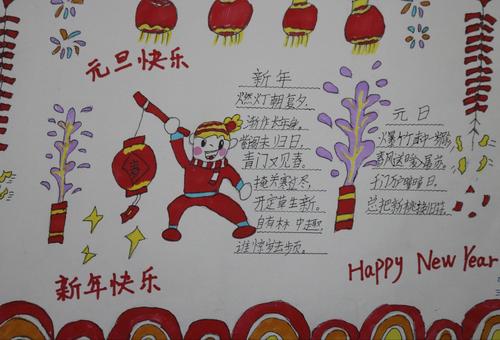 元旦快乐
新年
燃灯朝复夕
渐作长年身。
紫阁未归日,
青门又见春。
掩关寒过尽,
开定草生新。
自有林中趣,
谁惊岁去频。
元日
爆竹声中一岁除
春风送暖入屠苏。
千门万户曈曈日,
总把新桃换旧符。
春
新年快乐
Happy New Year